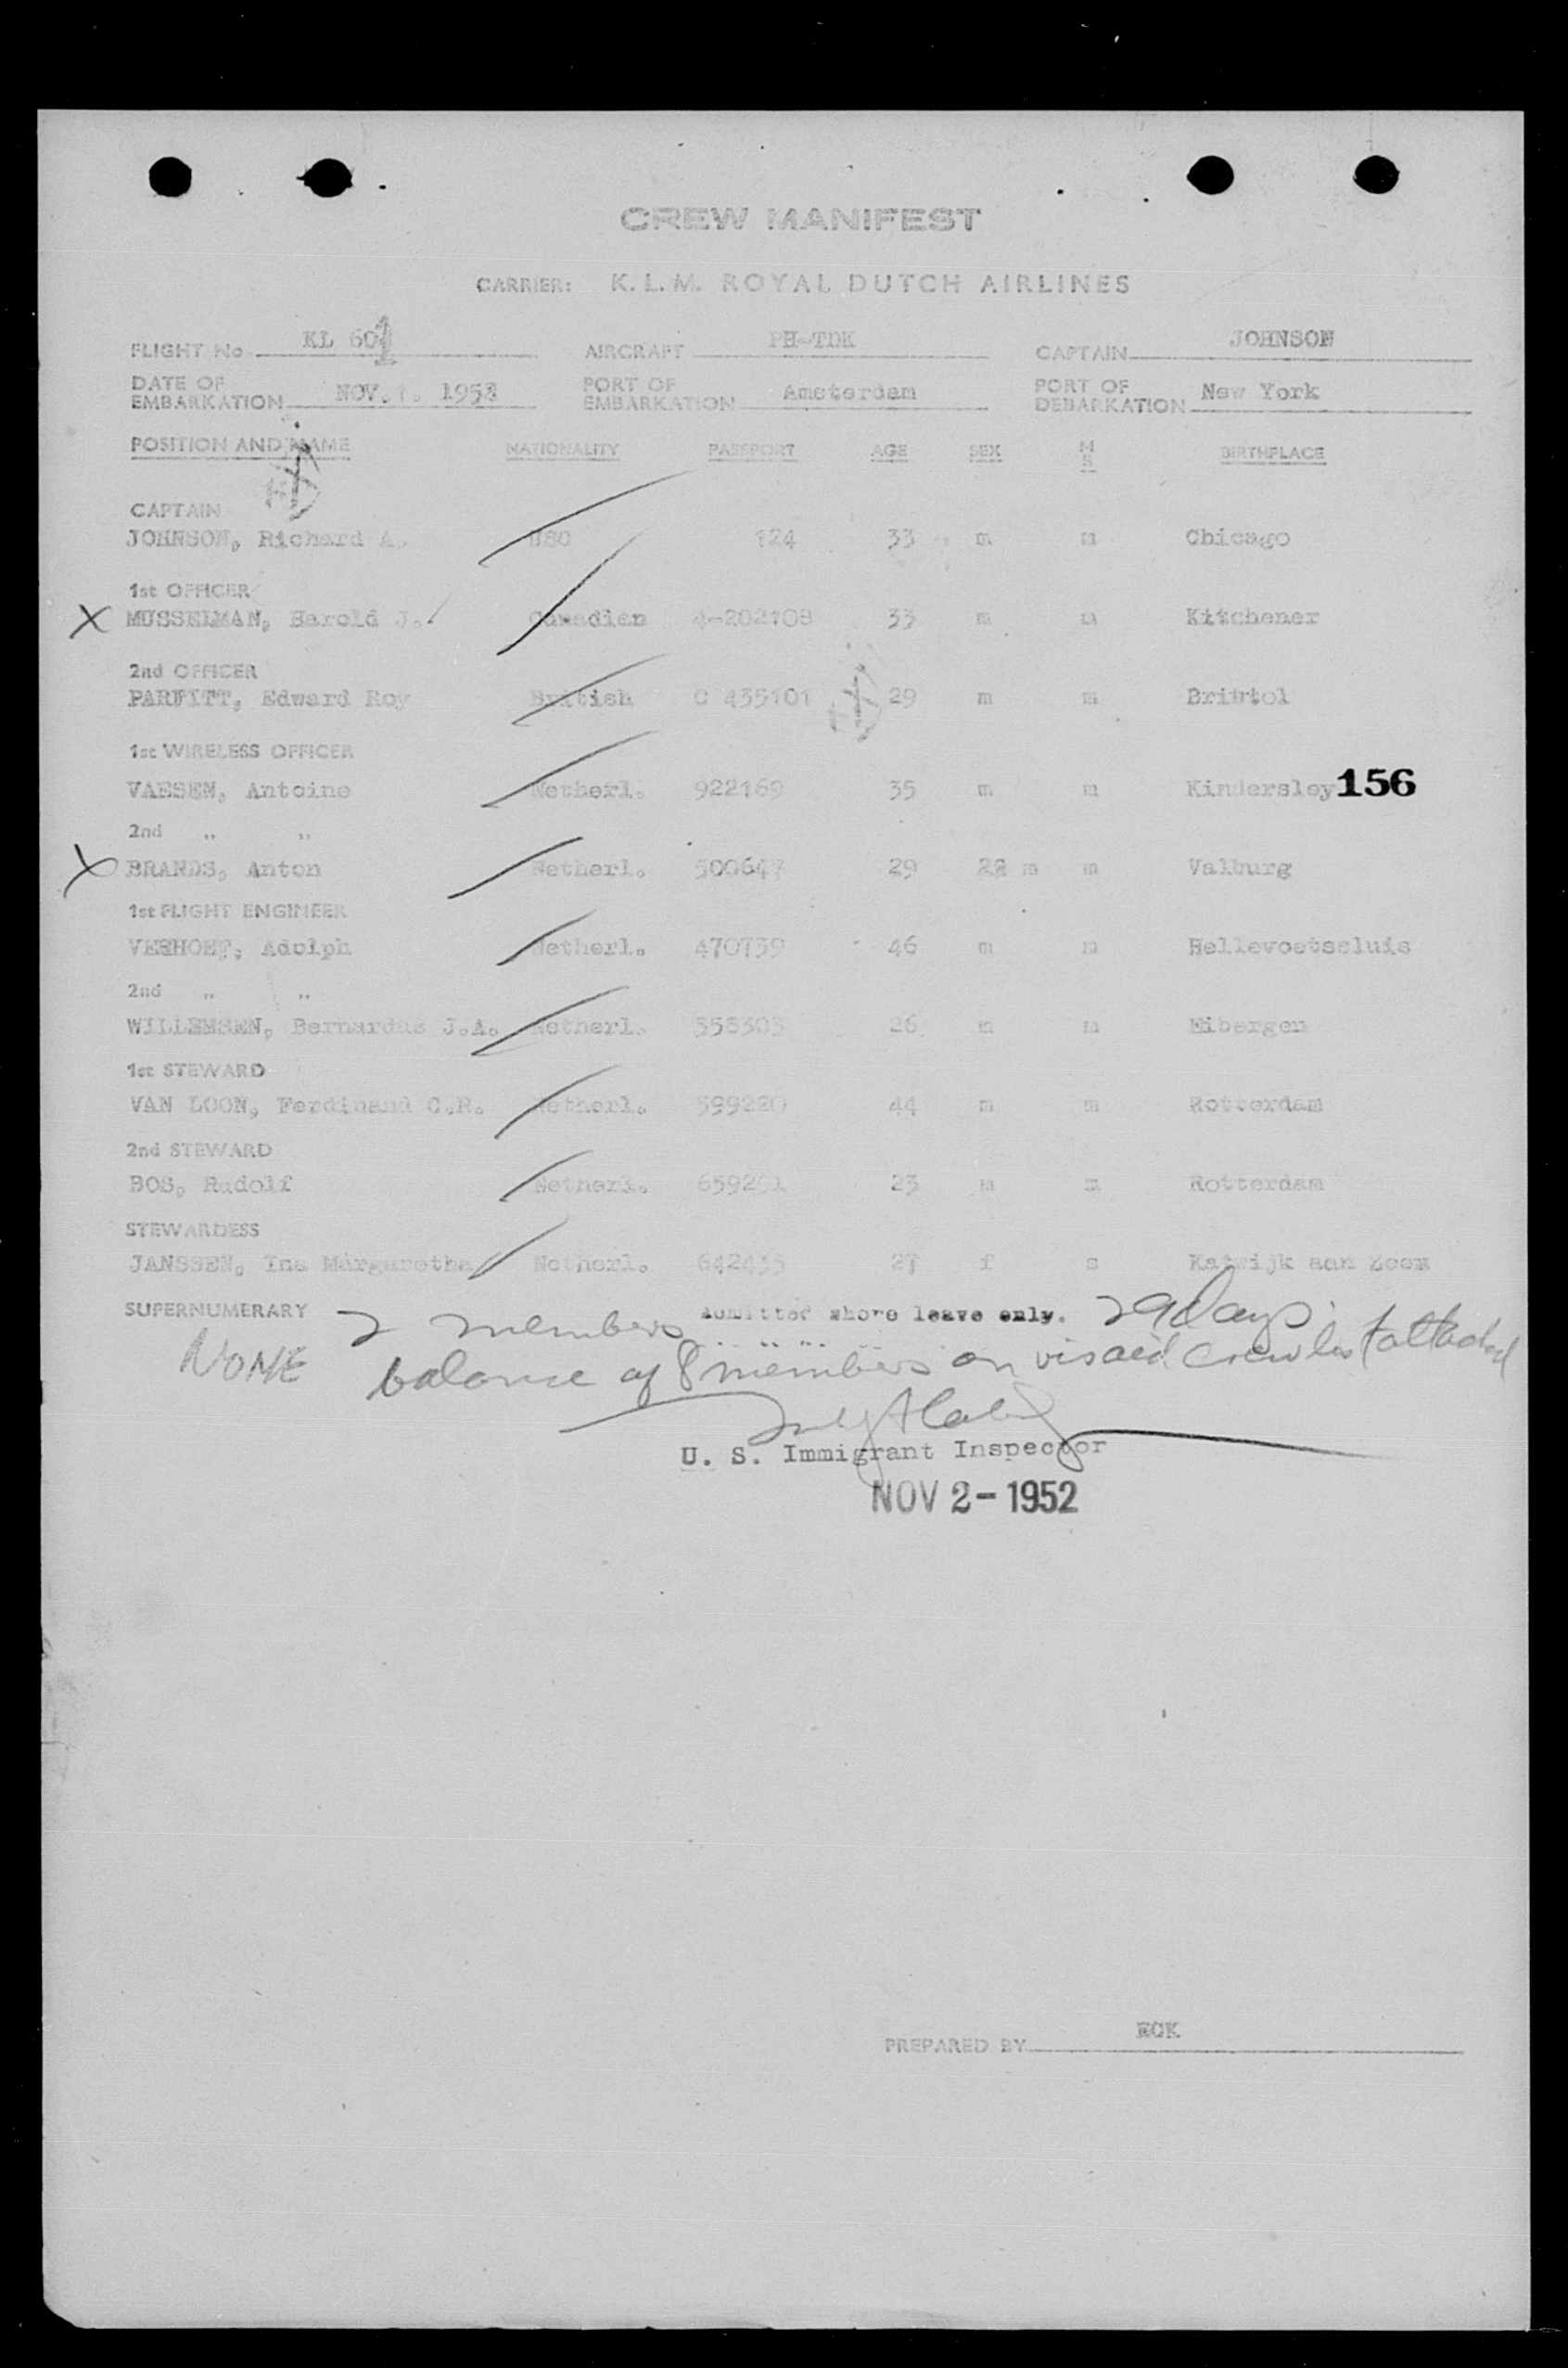 CREW MANIFEST
CARRIER: K.L.M. ROYAL DUTCH AIRLINES
FLIGHT No KL 601 AIRCRAFT PH-TDK CAPTAIN JOHNSON
DATE OF EMBARKATION NOV. 1. 1952 PORT OF EMBARKATION Amsterdam PORT OF DEBARKATION New York
POSITION AND NAME NATIONALITY PASSPORT AGE SEX M S BIRTHPLACE
CAPTAIN
JOHNSON, Richard A. 124 33 m m Chicago
1st OFFICER
X MUSSELMAN, Harold J. Canadian 4-202108 33 m m Kitchener
2nd OFFICER
PARFITT, Edward Roy British C 435101 29 m m Bristol
1st WIRELESS OFFICER
VAESEN, Antoine Netherl. 922169 35 m m Kindersley 156
2nd " "
X BRANDS, Anton Netherl. 500647 29 m m Valburg
1st FLIGHT ENGINEER
VERHOEF, Adolph Netherl. 470739 46 m m Hellevoetssluis
2nd " "
WILLEMSEN, Bernardus J.A. Netherl. 558303 26 m m Eibergen
1st STEWARD
VAN LOON, Ferdinand C.R. Netherl. 599220 44 m m Rotterdam
2nd STEWARD
BOS, Rudolf Netherl. 23 m m Rotterdam
STEWARDESS
JANSSEN, Ina Margaretha Netherl. 27 f s Katwijk aan Zee
SUPERNUMERARY 2 members admitted shore leave only. 29 days
NONE balance of 8 members on visaed crew list attached
U. S. Immigrant Inspector
NOV 2 - 1952
PREPARED BY